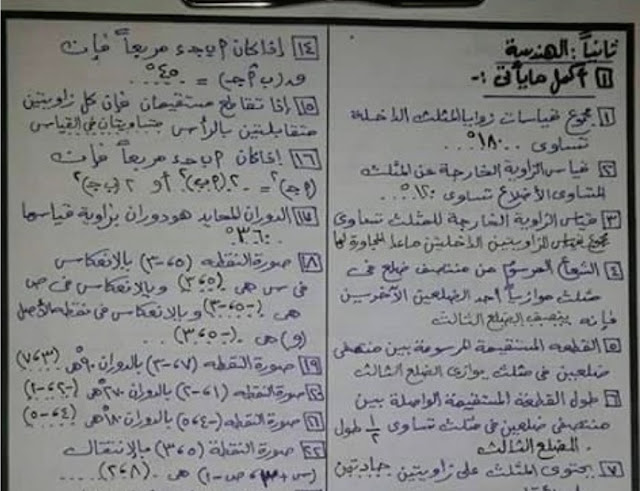 ثانياً: الهندسة
١ أكمل ما يأتى :-
١ مجموع قياسات زوايا المثلث الداخلة
تساوى ..١٨٠°..
٢ قياس الزاوية الخارجة عن المثلث
المتساوى الأضلاع تساوى ..١٢٠°
٣ قياس الزاوية الخارجة للمثلث تساوى
مجموع قياس الزاويتين الداخلتين ماعدا المجاورة لها
٤ الشعاع المرسوم من منتصف ضلع فى
مثلث موازياً أحد الضلعين الآخرين
فإنه ينصف الضلع الثالث
٥ القطعه المستقيمة المرسومة بين منتصفى
ضلعين فى مثلث يوازى الضلع الثالث
٦ طول القطعة المستقيمة الواصلة بين
منتصفى ضلعين فى مثلث تساوى ١/٢ طول
الضلع الثالث
٧ يحتوى المثلث على زاويتين حادتين
١٤ إذا كان ٢ ب جـ د مربعاً فإن
ق(ب ٢ جـ) = ..٤٥°..
١٥ إذا تقاطع مستقيمان فإن كل زاويتين
متقابلتين بالرأس متساويتان فى القياس
١٦ إذا كان ٢ ب جـ د مربعاً فإن
(٢جـ)² = ..٢(٢ب)² أو ٢(ب جـ)²
١٧ الدوران المحايد هو دوران بزاوية قياسها
..٣٦٠°..
١٨ صورة النقطه (٥، -٣) بالإنعكاس
فى س هى (٥، ٣) وبالإنعكاس فى ص
هى (-٥، -٣) وبالإنعكاس فى نقطه الأصل
(و) هى (-٥، ٣)...
١٩ صورة النقطه (٧، -٣) بالدوران ٩٠° هى (٣، ٧)
٢٠ صورة النقطه (١، -٢) بالدوران ٢٧٠° هى (-٢، -١)
٢١ صورة النقطه (-٤، ٥) بالدوران ١٨٠° هى (٤، -٥)
٢٢ صورة النقطة (٥، ٣) بالإنتقال
(س+٣، ص-١) هى (٨، ٢)....